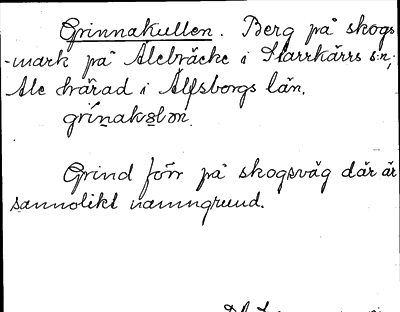 Grinnakullen. Berg på skogs
-mark på Alebräcke i Starrkärrs s:n,
Ale härad i Älfsborgs län.
grínakɷlən.
Grind förr på skogsväg där är
sannolikt namngrund.